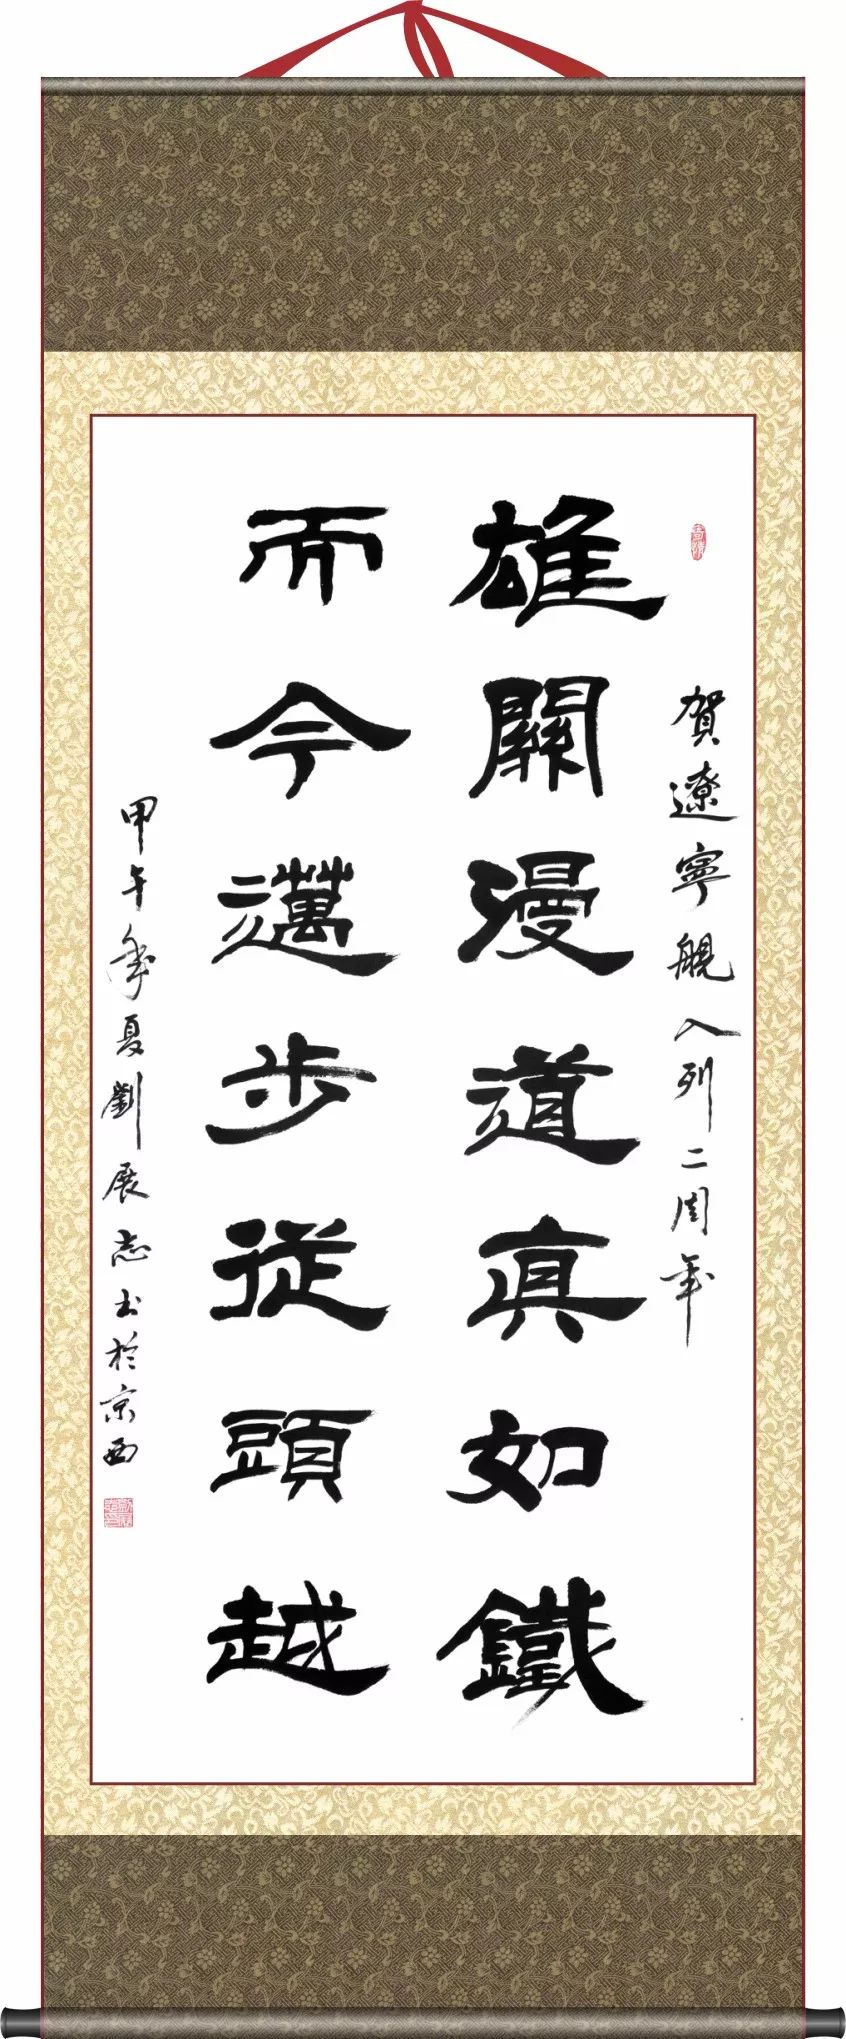 賀遼寧艦入列二周年
雄關漫道真如鐵
而今邁步從頭越
甲午年夏劉展志書於京西